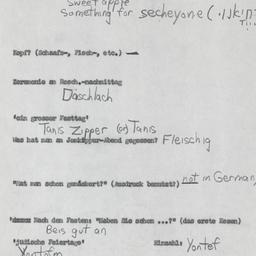 Sweet apple
Something for secheyone (
Kopf? (Schaafs-, Fisch-, etc.) —
Zeremonie am Rosch.-nachmittag
Daschlach
'ein grosser Fasttag'
Tanis Zipper (or) Tanis
Was hat man am Jomkipper-Abend gegessen? Fleischig
"Hat man schon genachert?" (Ausdruck benutzt?) not in German
Nach dem Fasten: "Haben Sie schon ...?" (das erste Essen)
Beis gut an
'jüdische Feiertage' Einzahl: Yontef
Yontofm